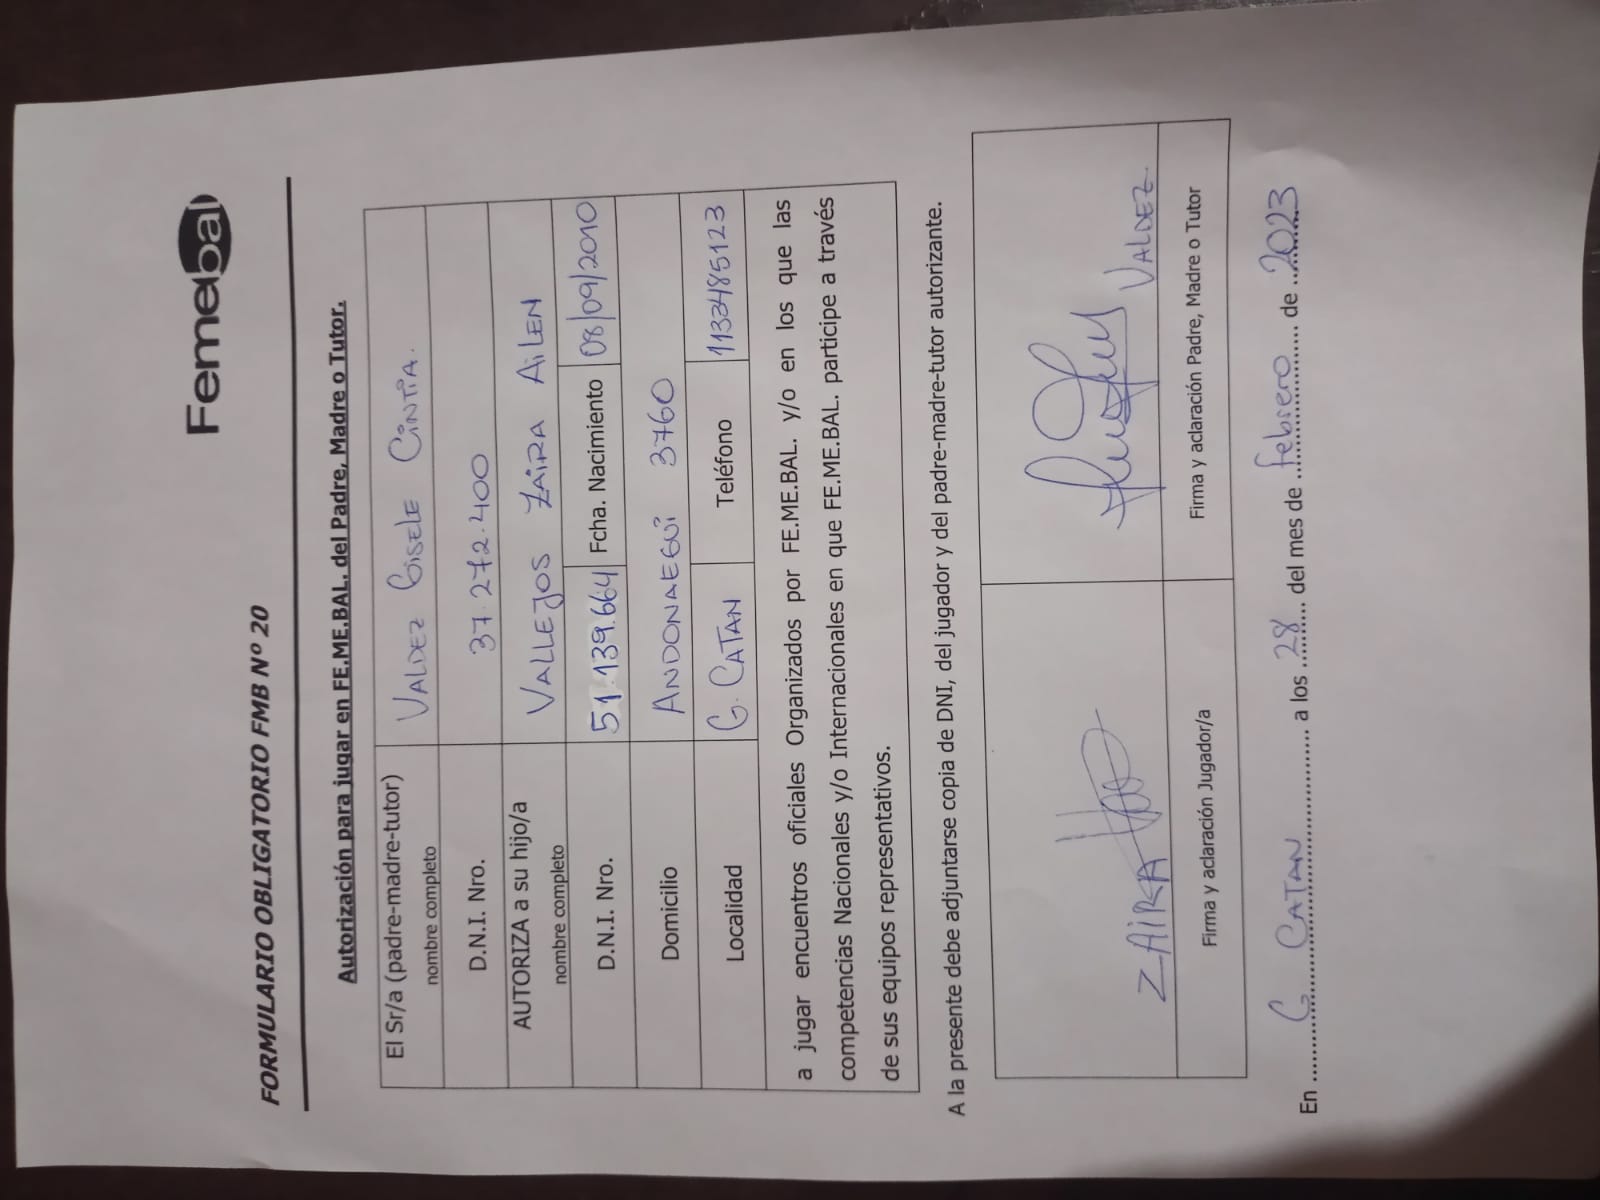 Femebal
FORMULARIO OBLIGATORIO FMB Nº 20
Autorización para jugar en FE.ME.BAL. del Padre, Madre o Tutor.
El Sr/a (padre-madre-tutor)
nombre completo
VALDEZ GISELE CINTIA.
D.N.I. Nro.
37.272.400
AUTORIZA a su hijo/a
nombre completo
VALLEJOS ZAIRA AILEN
D.N.I. Nro.
51.139.664
Fcha. Nacimiento
08/09/2010
Domicilio
ANDONAEGUI 3760
Localidad
G. CATAN
Teléfono
1132485123
a jugar encuentros oficiales Organizados por FE.ME.BAL. y/o en los que las
competencias Nacionales y/o Internacionales en que FE.ME.BAL. participe a través
de sus equipos representativos.
A la presente debe adjuntarse copia de DNI, del jugador y del padre-madre-tutor autorizante.
ZAIRA
VALDEZ.
Firma y aclaración Jugador/a
Firma y aclaración Padre, Madre o Tutor
En G CATAN a los 28 del mes de febrero de 2023